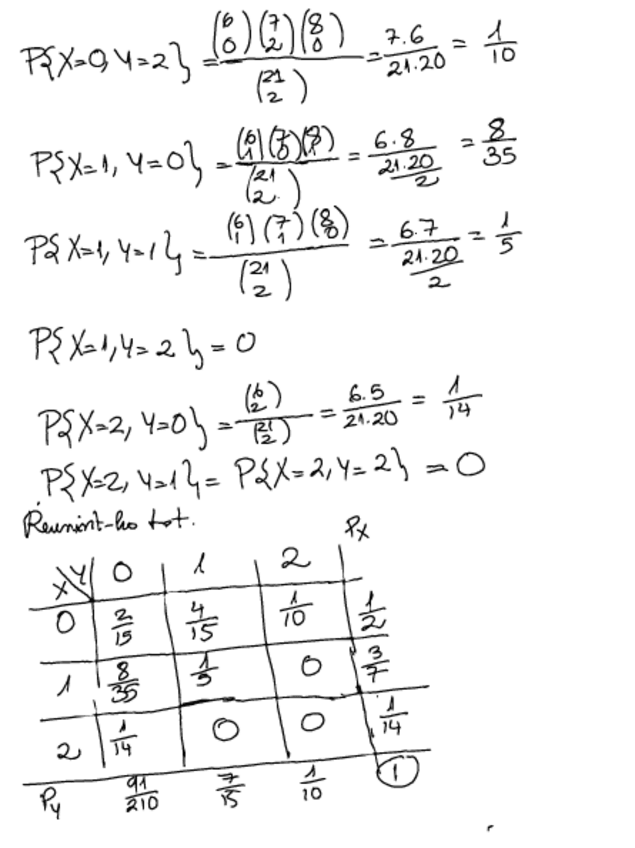 P{X=0, Y=2} = \frac{\binom{6}{0}\binom{7}{2}\binom{8}{0}}{\binom{21}{2}} = \frac{7.6}{21.20} = \frac{1}{10}
P{X=1, Y=0} = \frac{\binom{6}{1}\binom{7}{0}\binom{8}{1}}{\binom{21}{2}} = \frac{6.8}{\frac{21.20}{2}} = \frac{8}{35}
P{X=1, Y=1} = \frac{\binom{6}{1}\binom{7}{1}\binom{8}{0}}{\binom{21}{2}} = \frac{6.7}{\frac{21.20}{2}} = \frac{1}{5}
P{X=1, Y=2} = 0
P{X=2, Y=0} = \frac{\binom{6}{2}}{\binom{21}{2}} = \frac{6.5}{21.20} = \frac{1}{14}
P{X=2, Y=1} = P{X=2, Y=2} = 0
Reunint-ho tot.
X\Y 0 1 2 P_X
0 \frac{2}{15} \frac{4}{15} \frac{1}{10} \frac{1}{2}
1 \frac{8}{35} \frac{1}{5} 0 \frac{3}{7}
2 \frac{1}{14} 0 0 \frac{1}{14}
P_Y \frac{91}{210} \frac{7}{15} \frac{1}{10} 1